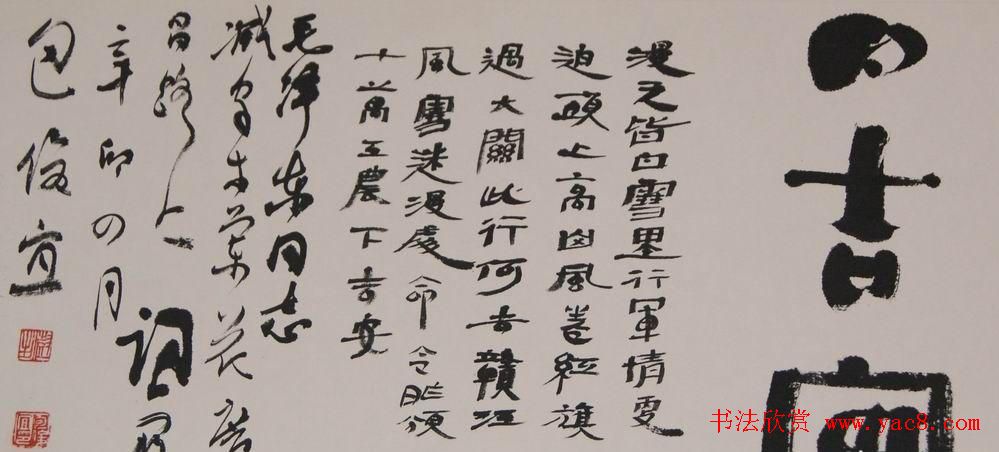 吉
漫天皆白雪里行軍情更
迫頭上高山風卷紅旗
過大關此行何去贛江
風雪迷漫處命令昨頒
十萬工農下吉安
毛澤東同志
減字木蘭花廣
昌路上
詞
辛卯四月
包俊宜
书法欣赏 www.yac8.com